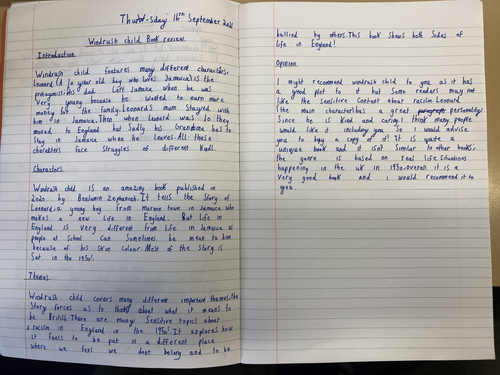 Thursday 16th September 2021
Windrush child Book review
Introduction
Windrush child features many different characters.
Leonard (a 10 year old boy who loves Jamaica) is the
protagonist. His dad left Jamaica when he was
very young because he wanted to earn more
money for the family. Leonard's mum stayed with
him in Jamaica. Then when Leonard was 10 they
moved to England but sadly his Grandma has to
stay in Jamaica when he leaves. All these
charekters face struggles of different kinds.
Charactors
Windrush child is an amazing book published in
2020 by Benjamin Zephaniah. It tells the story of
Leonard, a young boy from maroon town in Jamaica who
makes a new life in England. But life in
England is very different from life in Jamaica as
people at school can sometimes be mean to him
because of his skin colour. Most of the story is
sat in the 1950s.
Themes
Windrush child covers many different important themes. The
story forces us to think about what it means to
be British. There are many sensitive topics about
racism in England in the 1950s. It explores how
it feels to be put in a different place
where we feel we dont belong and to be
bullied by others. This book shows both sides of
life in England!
Opinion
I might recommend windrush child to you as it has
a good plot to it but some readers may not
like the sensitive content about racism. Leonard
(the main character) has a great personality
since he is kind and caring. I think many people
would like it including you so I would advise
you to buy a copy of it! It is quite a
unique book and it isnt similar to other books.
the genre is based on real life situations
happening in the uk in 1950. overall it is a
very good book and i would recommend it to
you.